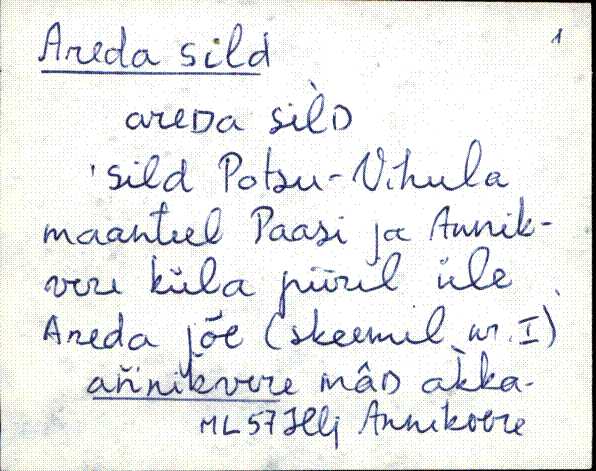 Areda sild 1
areDa sìlD
'sild Potsu-Vihula
maanteel Paasi ja Annik-
vere küla piiril üle
Areda jõe (skeemil nr. I)
mâD
ML 57 Hlj Annikvere